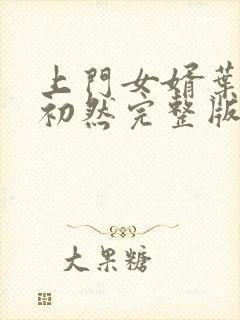 上門女婿葉
初然完整版
大果糖